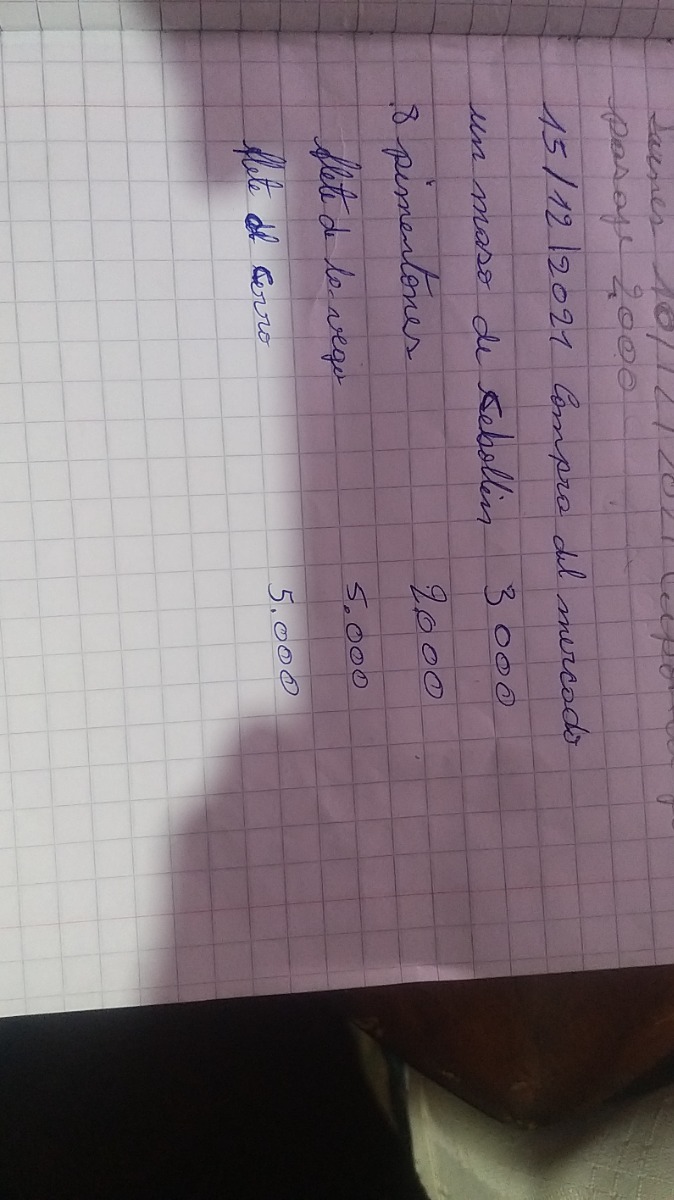 10/12/2021
pasaje 2,000
15/12/2021 Compra del mercado
un maso de Cebollin 3000
8 pimentones 2,000
flete de lo vega 5.000
flete del Cerro 5.000